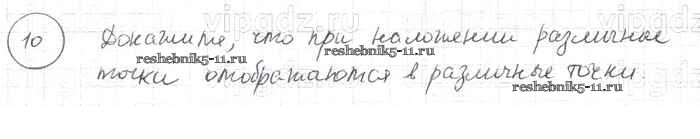 vipgdz.ru
10 Докажите, что при наложении различные
reshebnik5-11.ru
точки отображаются в различные точки.
reshebnik5-11.ru reshebnik5-11.ru